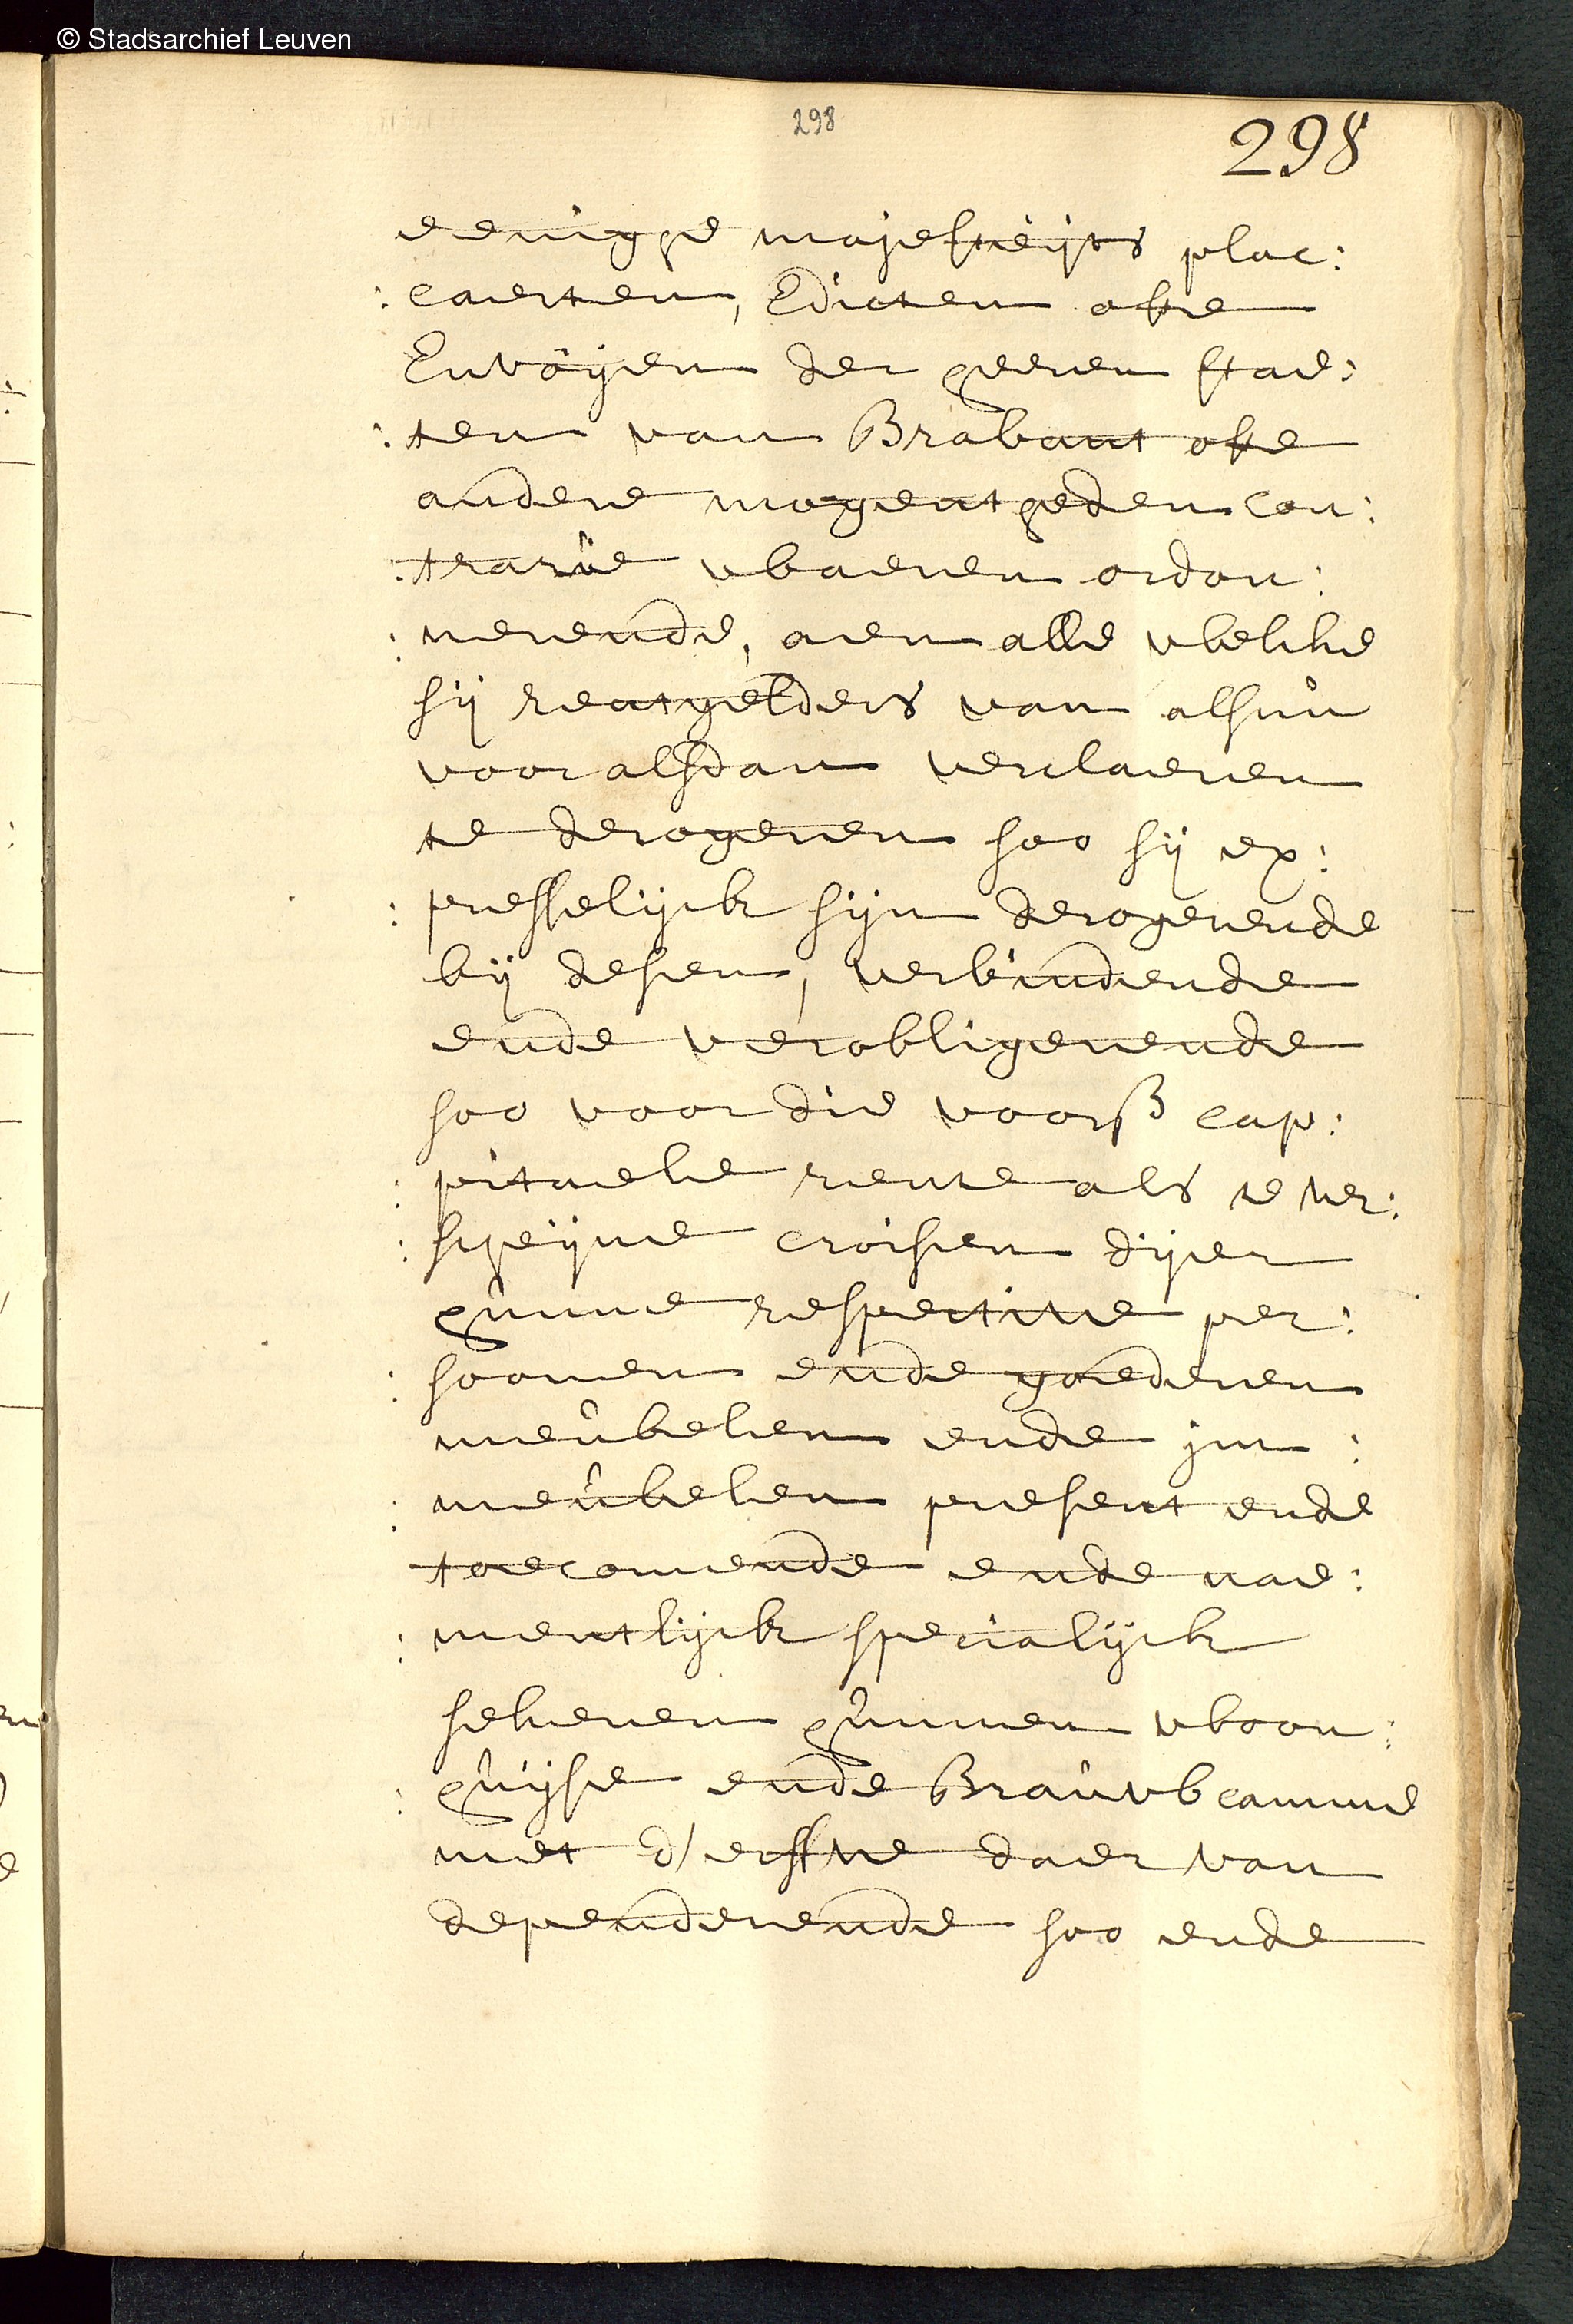 © Stadsarchief Leuven
298
298
eenigge majesteijts plac:
:caerten, Edicten ofte
Envoijen der heeren stae:
:ten van Brabant ofte
andere mogentheden con:
:trarie waeren ordon:
:nerende, aen alle welcke
sij rentgelders van alsnu
voor alsdan verclaeren
te derogeren soo sij ex:
:presselijck sijn derogerende
bij desen, verbindende
ende verobligerende
soo voor die voors cap:
:pitaele rente als te ver:
:scheijne croisen dijer
hunne respective per:
:soonen ende goederen
meubelen ende im:
:meubelen present ende
toecomende ende nae:
:mentlijck specialijck
selveren hunnen woon:
:huijse ende Brauwcamme
met d'erffve daer van
dependerende soo ende